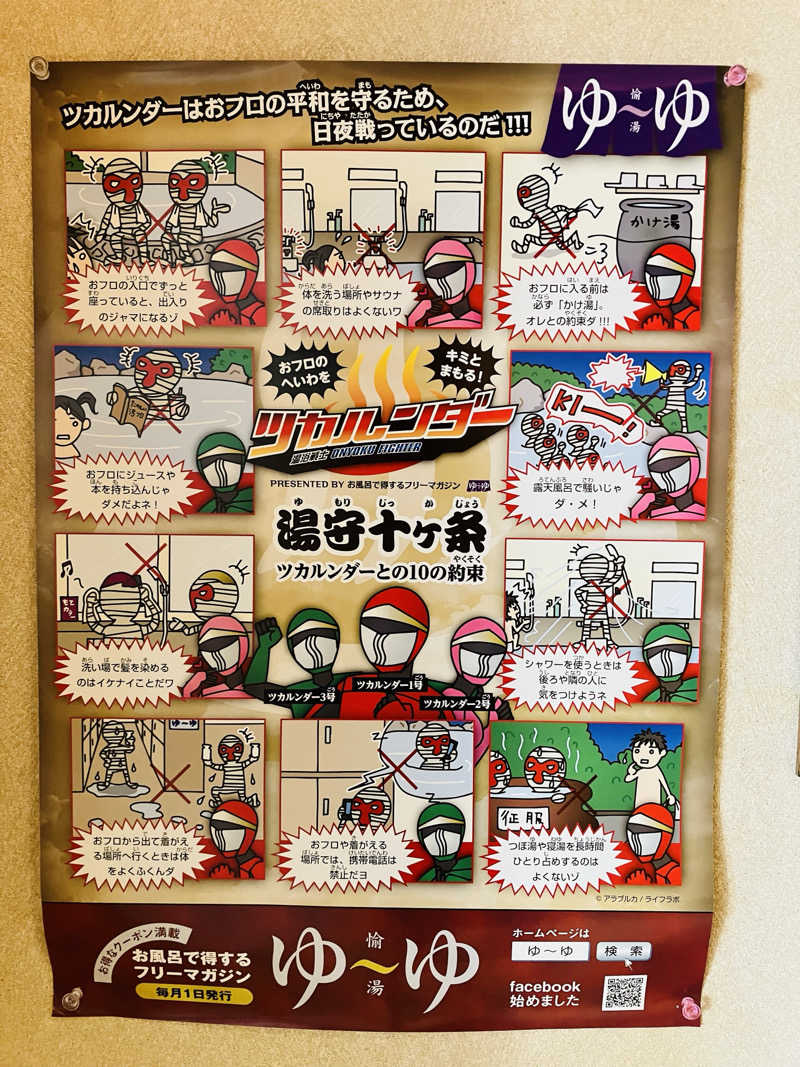 ツカルンダーはおフロの平和を守るため、
日夜戦っているのだ!!!
ゆ〜ゆ
愉
湯
おフロの入口でずっと
座っていると、出入り
のジャマになるゾ
体を洗う場所やサウナ
の席取りはよくないワ
かけ湯
おフロに入る前は
必ず「かけ湯」。
オレとの約束ダ!!!
おフロにジュースや
本を持ち込んじゃ
ダメだよネ!
おフロの
へいわを
キミと
まもる!
ツカルンダー
ONYOKU FIGHTER
PRESENTED BY お風呂で得するフリーマガジン ゆ〜ゆ
湯守十ヶ条
ツカルンダーとの10の約束
KI—!
露天風呂で騒いじゃ
ダ・メ!
洗い場で髪を染める
のはイケナイことだワ
ツカルンダー3号
ツカルンダー1号
ツカルンダー2号
シャワーを使うときは
後ろや隣の人に
気をつけようネ
ゆ〜ゆ
おフロから出て着がえ
る場所へ行くときは体
をよくふくんダ
おフロや着がえる
場所では、携帯電話は
禁止だヨ
征服
つぼ湯や寝湯を長時間
ひとり占めするのは
よくないゾ
© アラブルカ / ライフラボ
お得なクーポン満載
お風呂で得する
フリーマガジン
毎月1日発行
ゆ〜ゆ
愉
湯
ホームページは
ゆ〜ゆ 検索
facebook
始めました